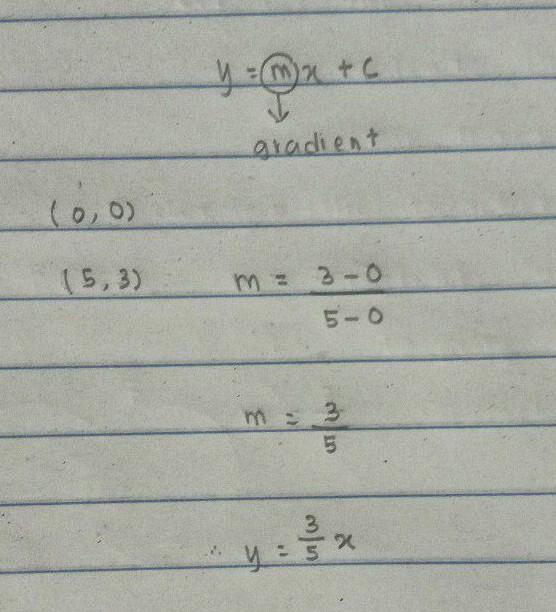 y = mx + c
gradient
(0, 0)
(5, 3) m = 3 - 0 / 5 - 0
m = 3 / 5
∴ y = 3/5 x